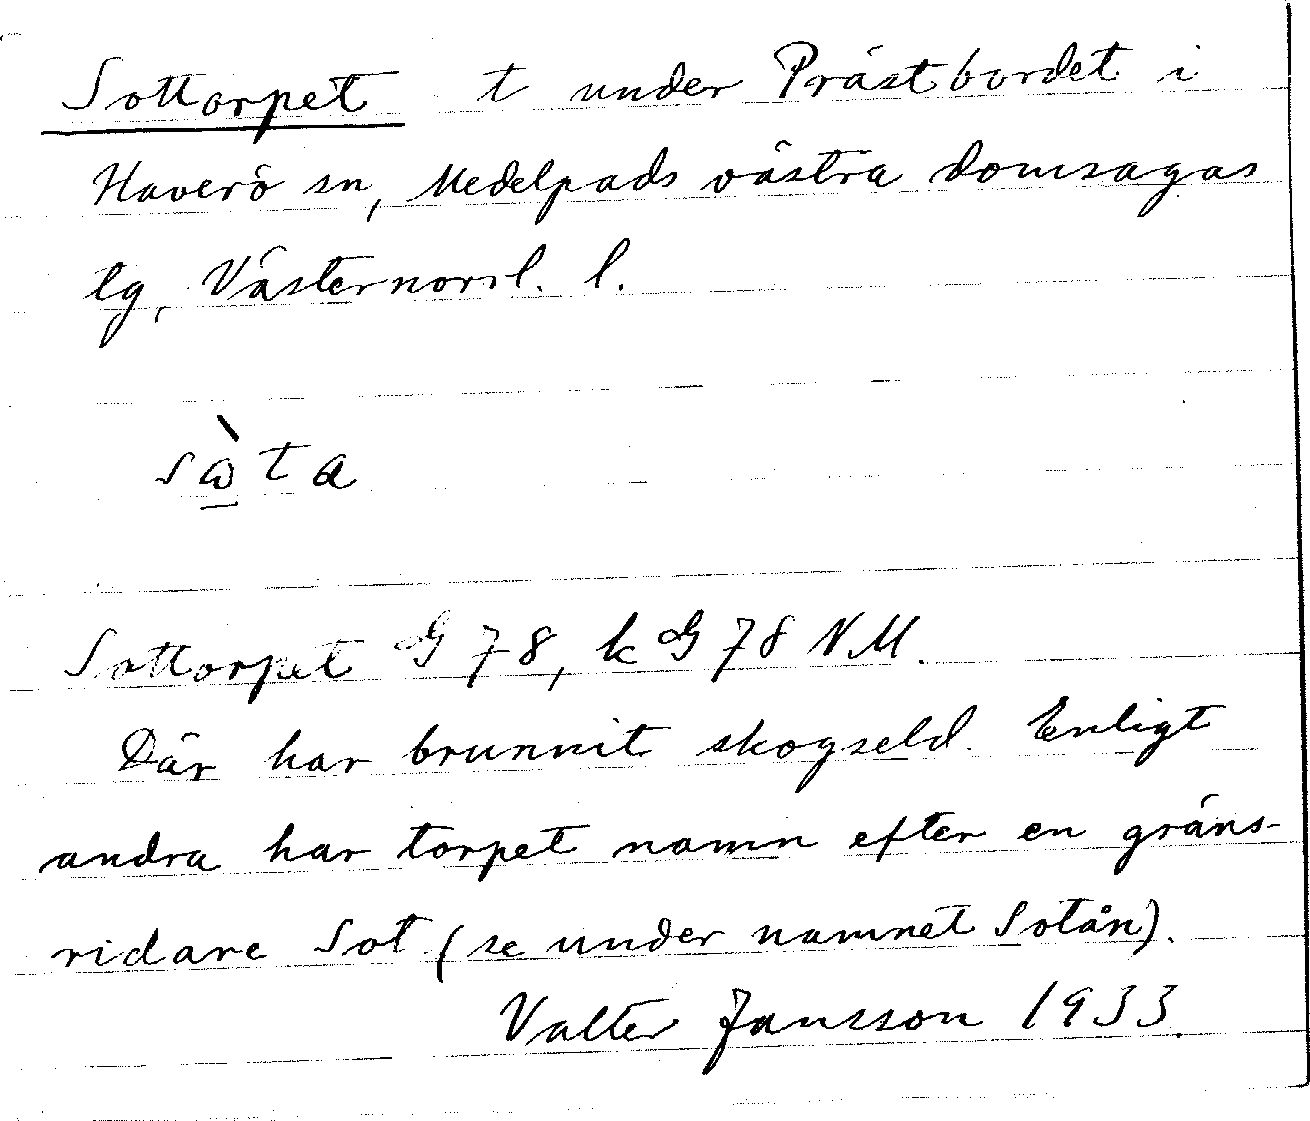 Sottorpet t under Prästbordet i
Haverö sn, Medelpads västra domsagas
tg, Västernorrl. l.
sὼta
Sottorpet G 78, k G 78 N.M.
Där har brunnit skogseld. Enligt
andra har torpet namn efter en gräns-
ridare Sot (se under namnet Sotån).
Valter Jansson 1933.